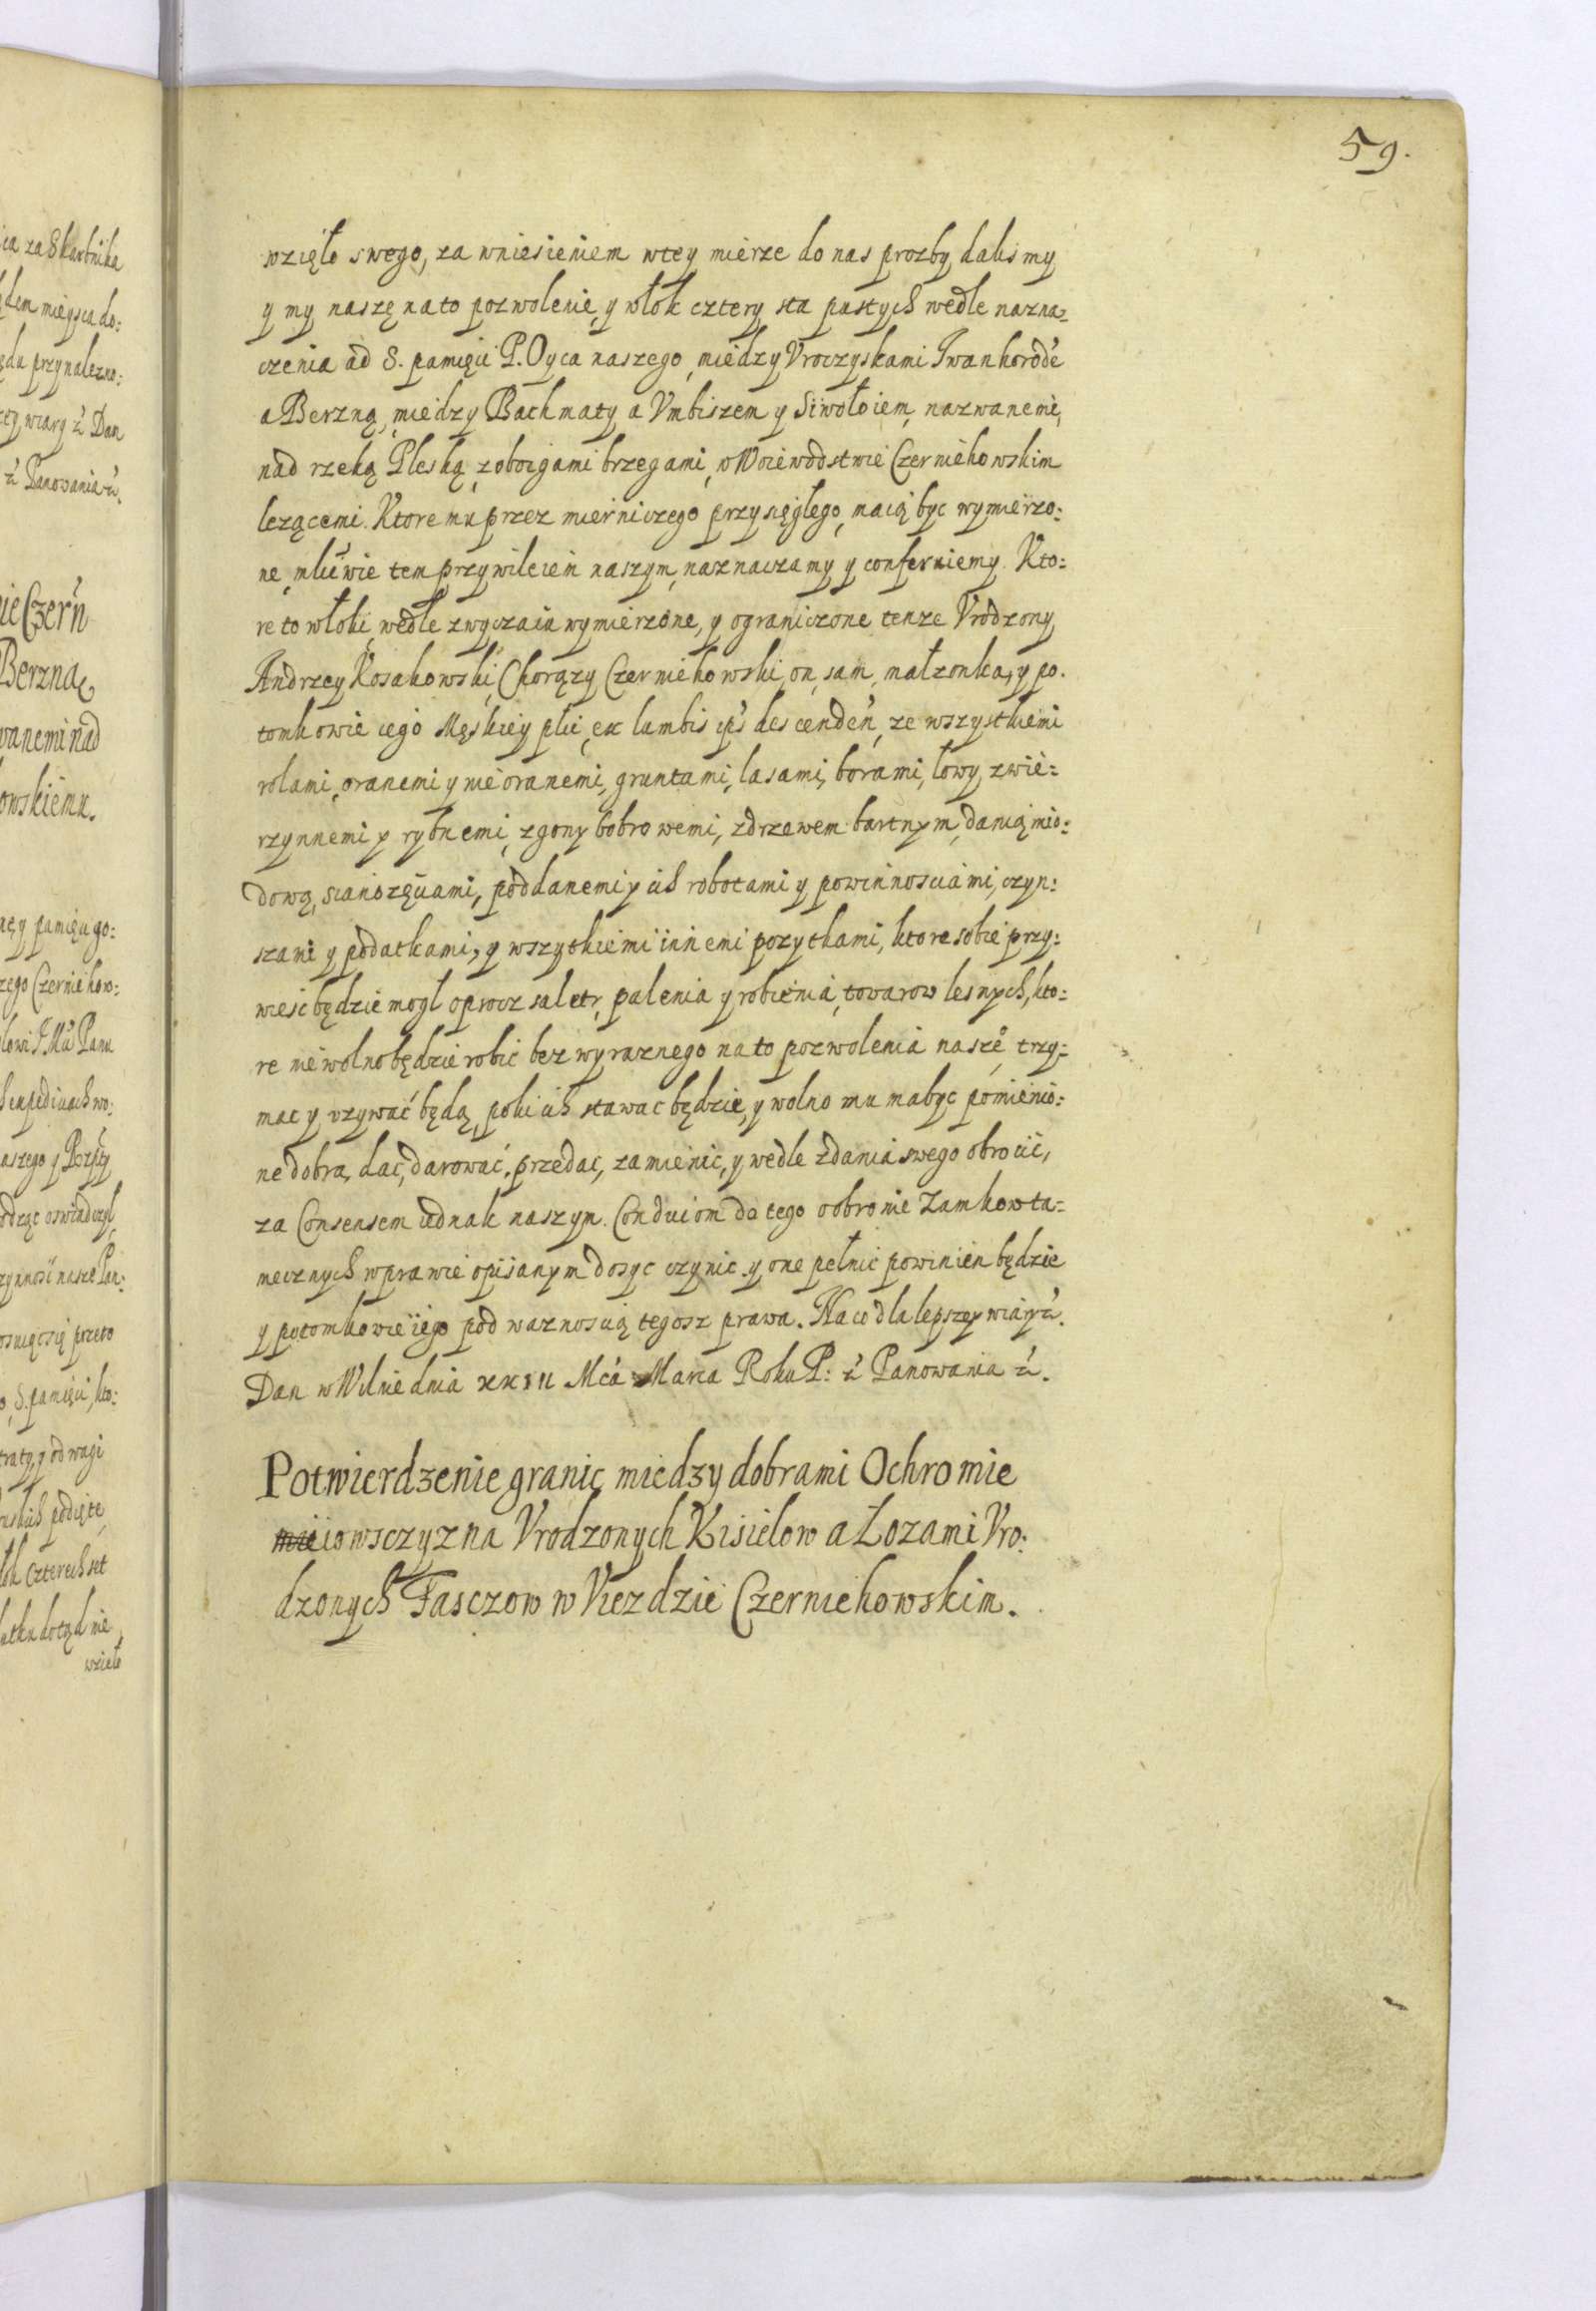 59.
wzięło swego, za wniesieniem wtey mierze do nas prozby dalismy
y my naszę na to pozwolenie, y włok cztery sta pustych wedle nazna=
czenia ad S. pamięci P. Oyca naszego, miedzy Vroczyskami Iwanhorodē
a Berzną, miedzy Bachmaty a Vmbiszem y Siwołoiem, nazwanemi,
nad rzeką Pleską, z oboigami brzegami, w Woiewodstwie Czerniehowskim
lezącemi. Ktore mu przez mierniczego przysięgłego, maią byc wymierzo:
ne, tem przywileiem naszym, naznaczamy y conferuiemy. Kto:
re to włoki, wedle zwyczaiu wymierzone, y ograniczone tenze Vrodzony
Andrzey Kosakowski, Chorązy Czerniehowski, on sam, małzonka, y po.
tomkowie iego Męskiey płci, ex lumbis ips descendeń, ze wszystkiemi
rolami, oranemi y nie oranemi, gruntami, lasami, borami, łowy, zwie=
rzynnemi y rybnemi, zgony bobrowemi, z drzewem bartnym, danią mio:
dową, sianozęciami, poddanemi y ich robotami y powinnosciami, czyn:
szami y podatkami, y wszytkiemi innemi pozytkami, ktore sobie przy:
wiesc będzie mogl oprocz saletr, palenia y robienia, towarow lesnych, kto:
re nie wolno będzie robic bez wyraznego na to pozwolenia naszē, trzy:
mac y vzywać będą, poki ich stawac będzie, y wolno mu ma byc pomienio:
ne dobra, dac, darować, przedac, zamienic, y wedle zdania swego obrocic,
za Consensem iednak naszym. Condiciom do tego o obronie Zamkow ta=
mecznych w prawie opisanym dosyc czynic y one pełnic powinien będzie
y potomkowie iego pod waznoscią tegosz prawa. Na co dla lepszey wiary &.
Dan w Wilnie dnia Mca Marca Roku P: & Panowania &.
Potwierdzenie granic miedzy dobrami Ochromie
miiowsczyzna Vrodzonych Kisielow a Łozami Vro:
dzonych Fasczow w Viezdzie Czerniehowskim.